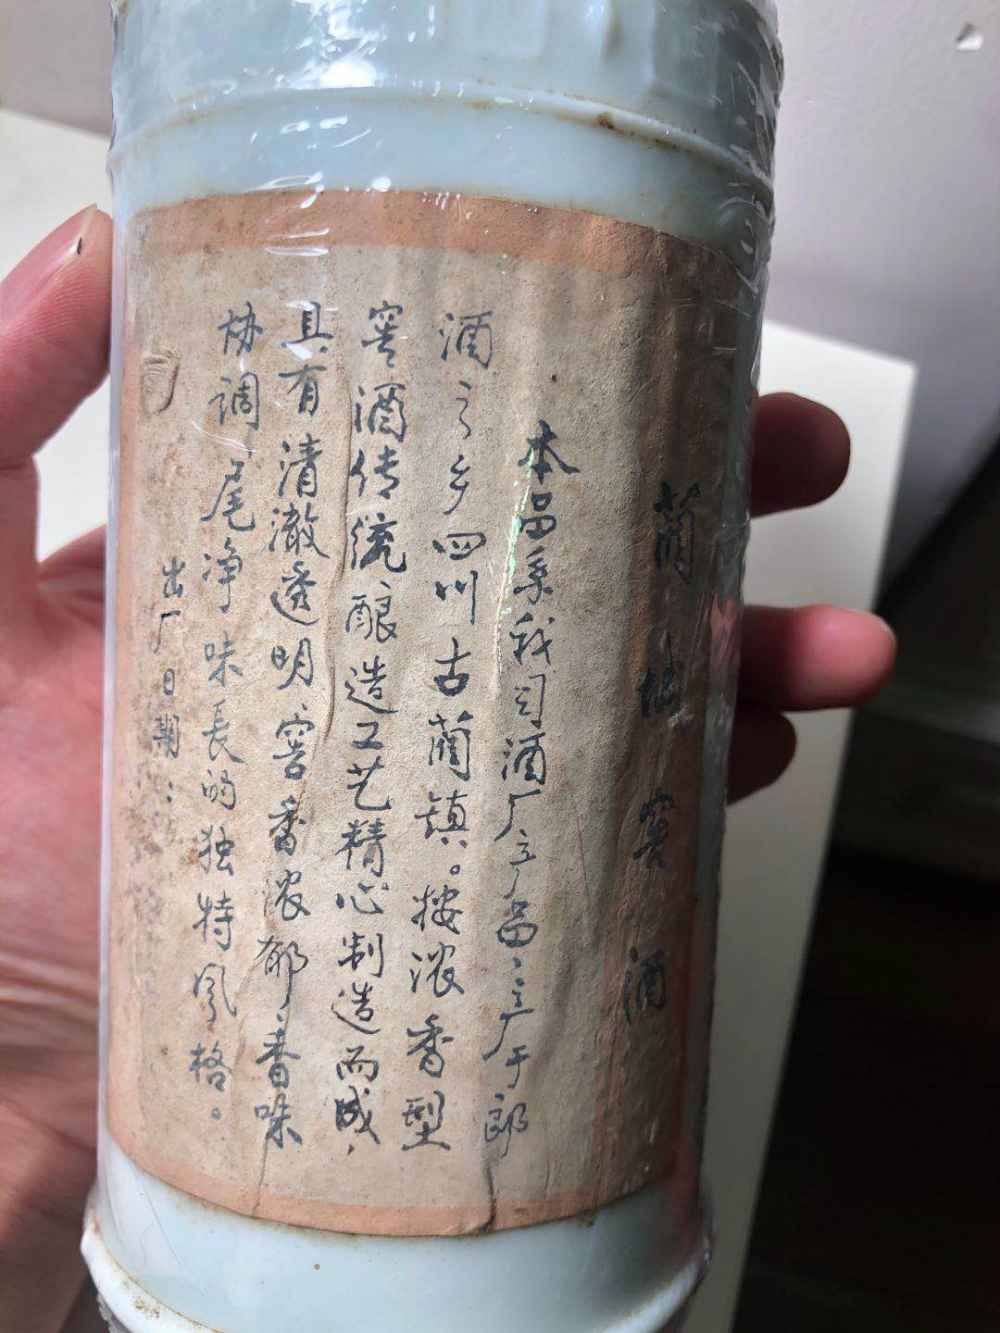 蔺仙窖酒
本品系我司酒厂产品，产于郎
酒之乡四川古蔺镇。按浓香型
窖酒传统酿造工艺精心制造而成，
具有清澈透明、窖香浓郁、香味
协调、尾净味長的独特风格。
出厂日期：